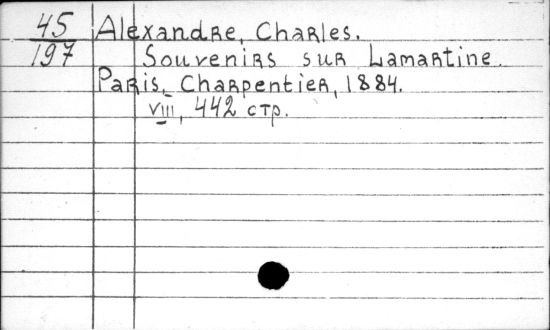 45
197
Alexandre, Charles.
Souvenirs sur Lamartine.
Paris, Charpentier, 1884.
VIII, 442 стр.